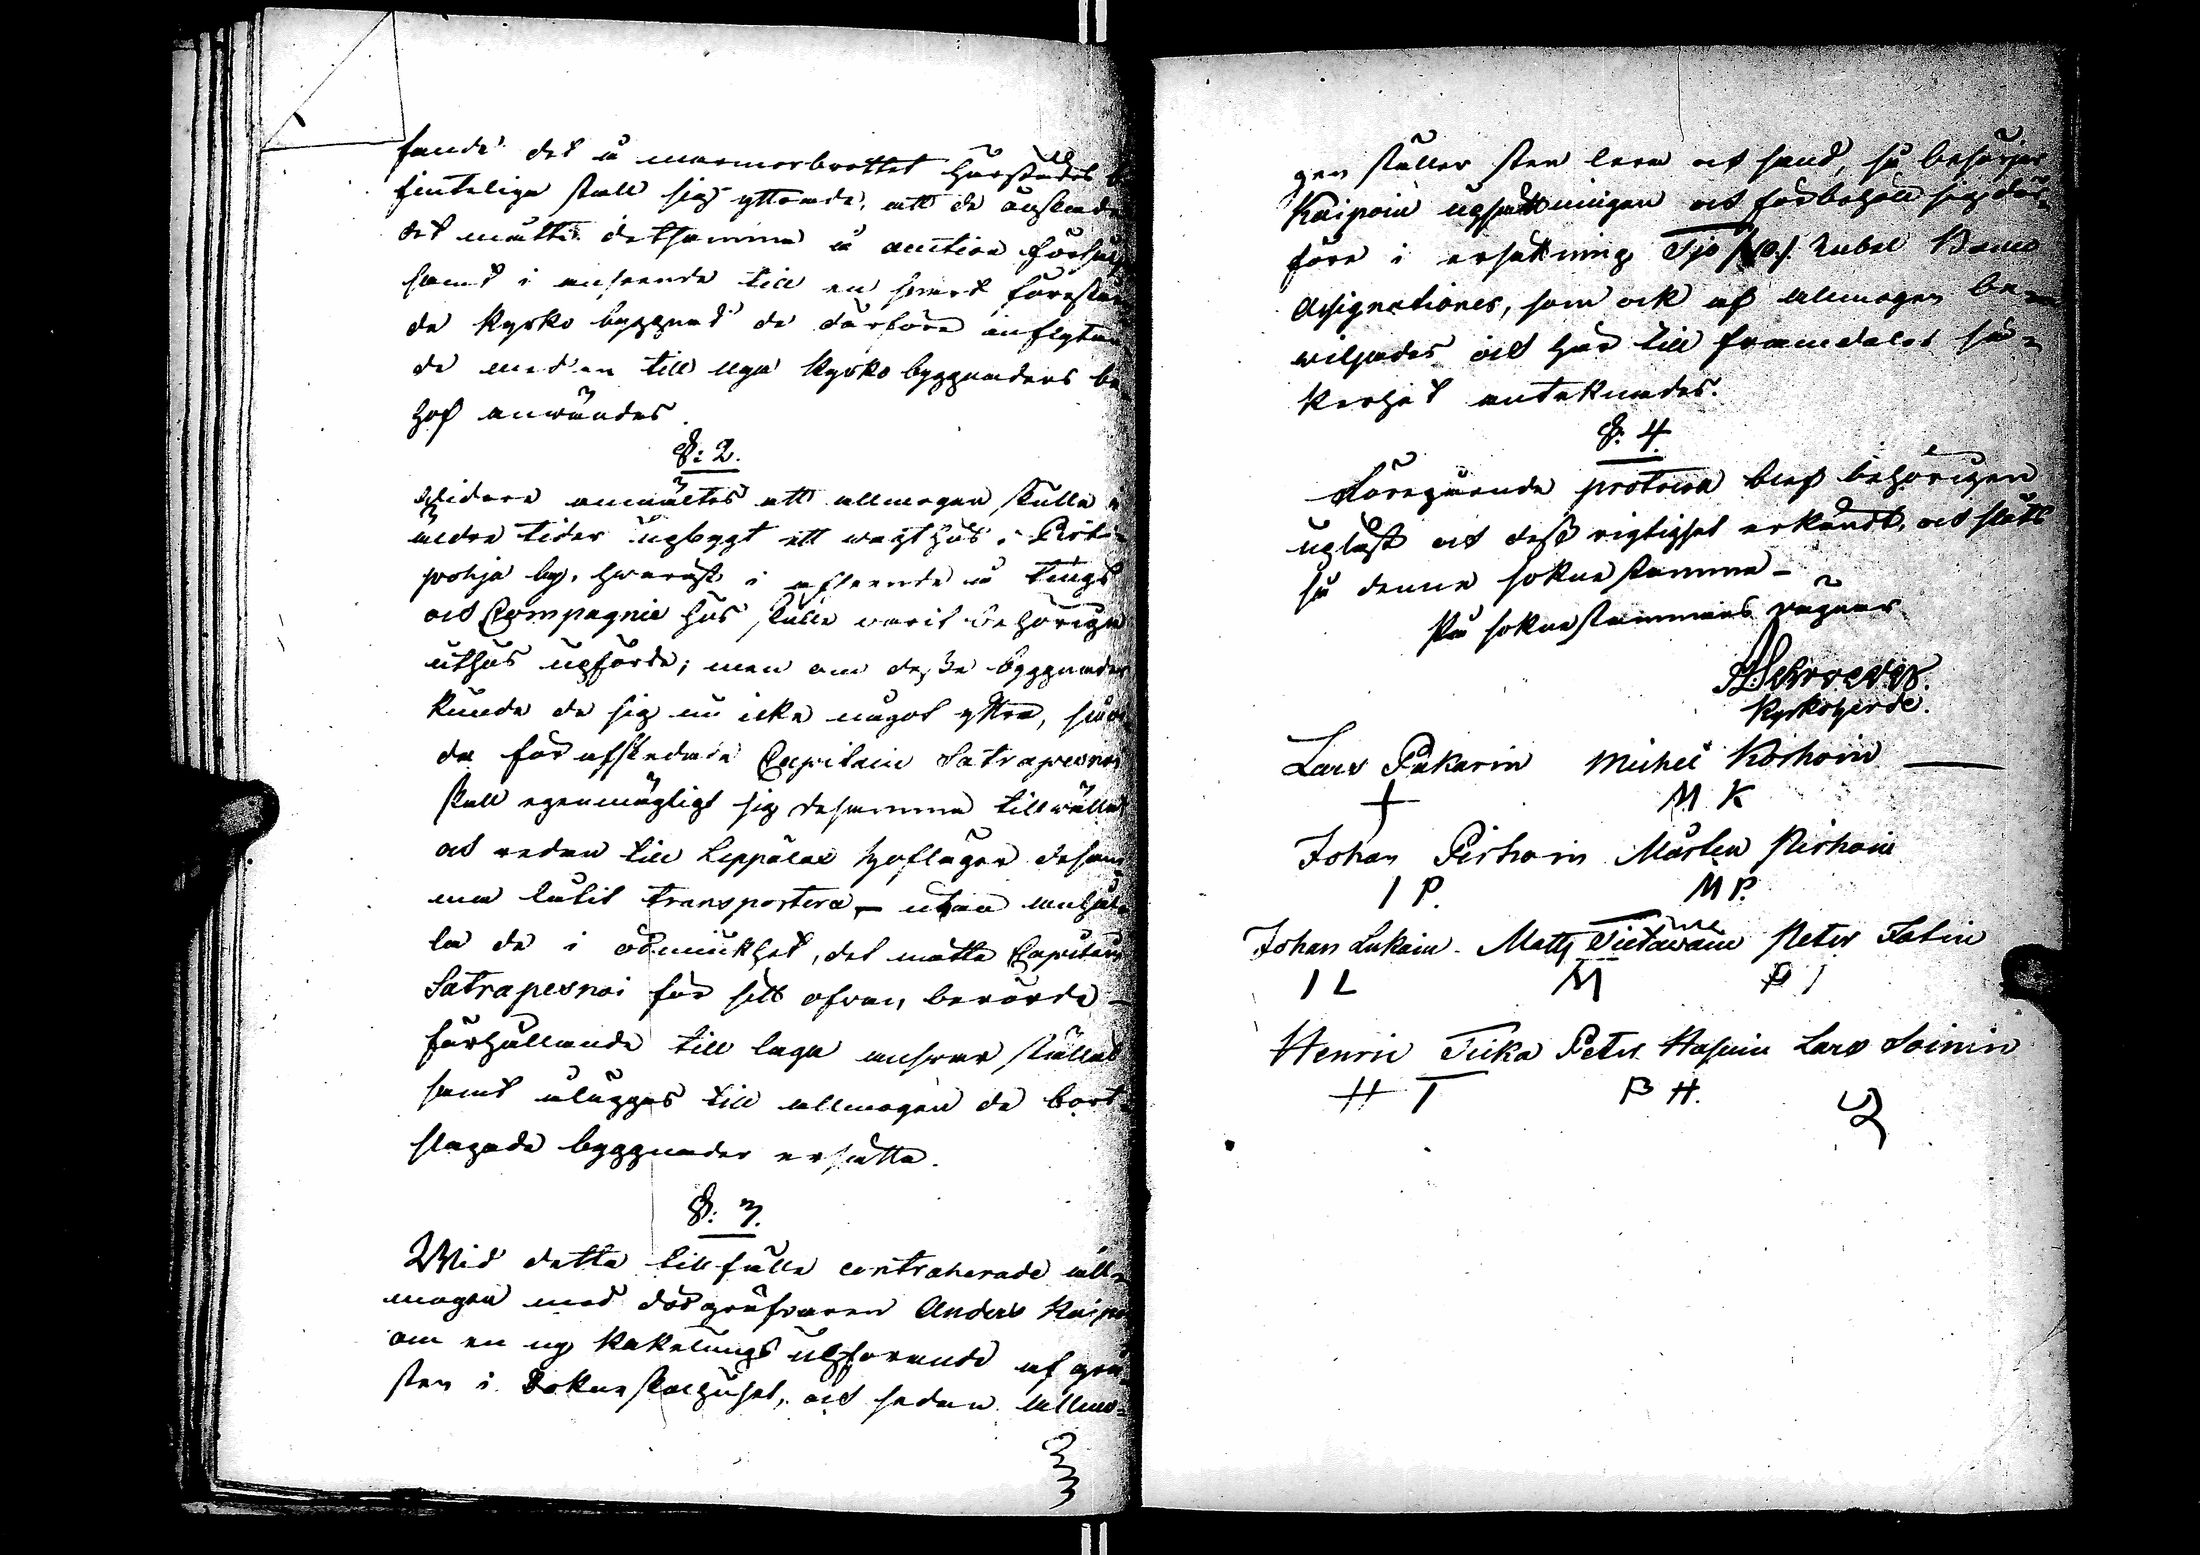 fande det å marmorbrottet härstädes be
finteliga stall sig yttrade, att de önskade
det måtte detsamma å auction försäljas
samt i anseende till en snart förestån
de kyrko byggnad de därföre inflytan
de medlen till nya kyrko byggnadens be
hof användes.
§: 2.
Widare anmältes att allmogen skulle i
äldre tider upbygt ett wagthus i Pirti-
pohja by, hwarest i afseende å tings
och Compagnie hus skulle varit behöriga
uthus upförde; men om desse byggnader
kunde de sig nu icke något yttra, sedan
de för afskedade Capitain Satrapesnoi
skall egenmägtigt sig desamma tillvällat
och sedan till Leppäselkä hofläger desam
ma låtit transportera – utan anhål-
la de i ödmiukhet, det måtte Capitain
Satrapesnoi för sitt ofvan berörde
förhållande till laga ansvar ställas
samt åläggas till allmogen de bort-
tagade byggnader ersätta.
§: 3.
Wid detta tillfälle contraherade all-
mogen med dödgräfvaren Anders Kaipoin
om en ny kakelungs upförande af grå
sten i Soknestuguhuset, och sedan allmo-
gen ställer sten lera och sand, så besörjer
Kaipoin upsättningen och förbehöll sig där-
före i ersättning Tjo /20/ Rubel Banco
Assignationer, som ock af allmogen be-
viljades och här till framdeles sä-
kerhet antecknades.
§: 4.
Föregående protocoll blef behörigen
upläst och dess rigtighet erkändt, och slöts
så denna soknestämma –
På soknestämmans vägnar
Schroeder.
Kyrkoherde.
Lars Pukarin Michel Korhoin
+ M K
Johan Pirhoin Mårten Pirhoin
I P. M P.
Johan Lukain Matts Tietäväin Peter Jatin
I L M P I
Henric Tuka Peter Hasuin Lars Soinin
H T P H.